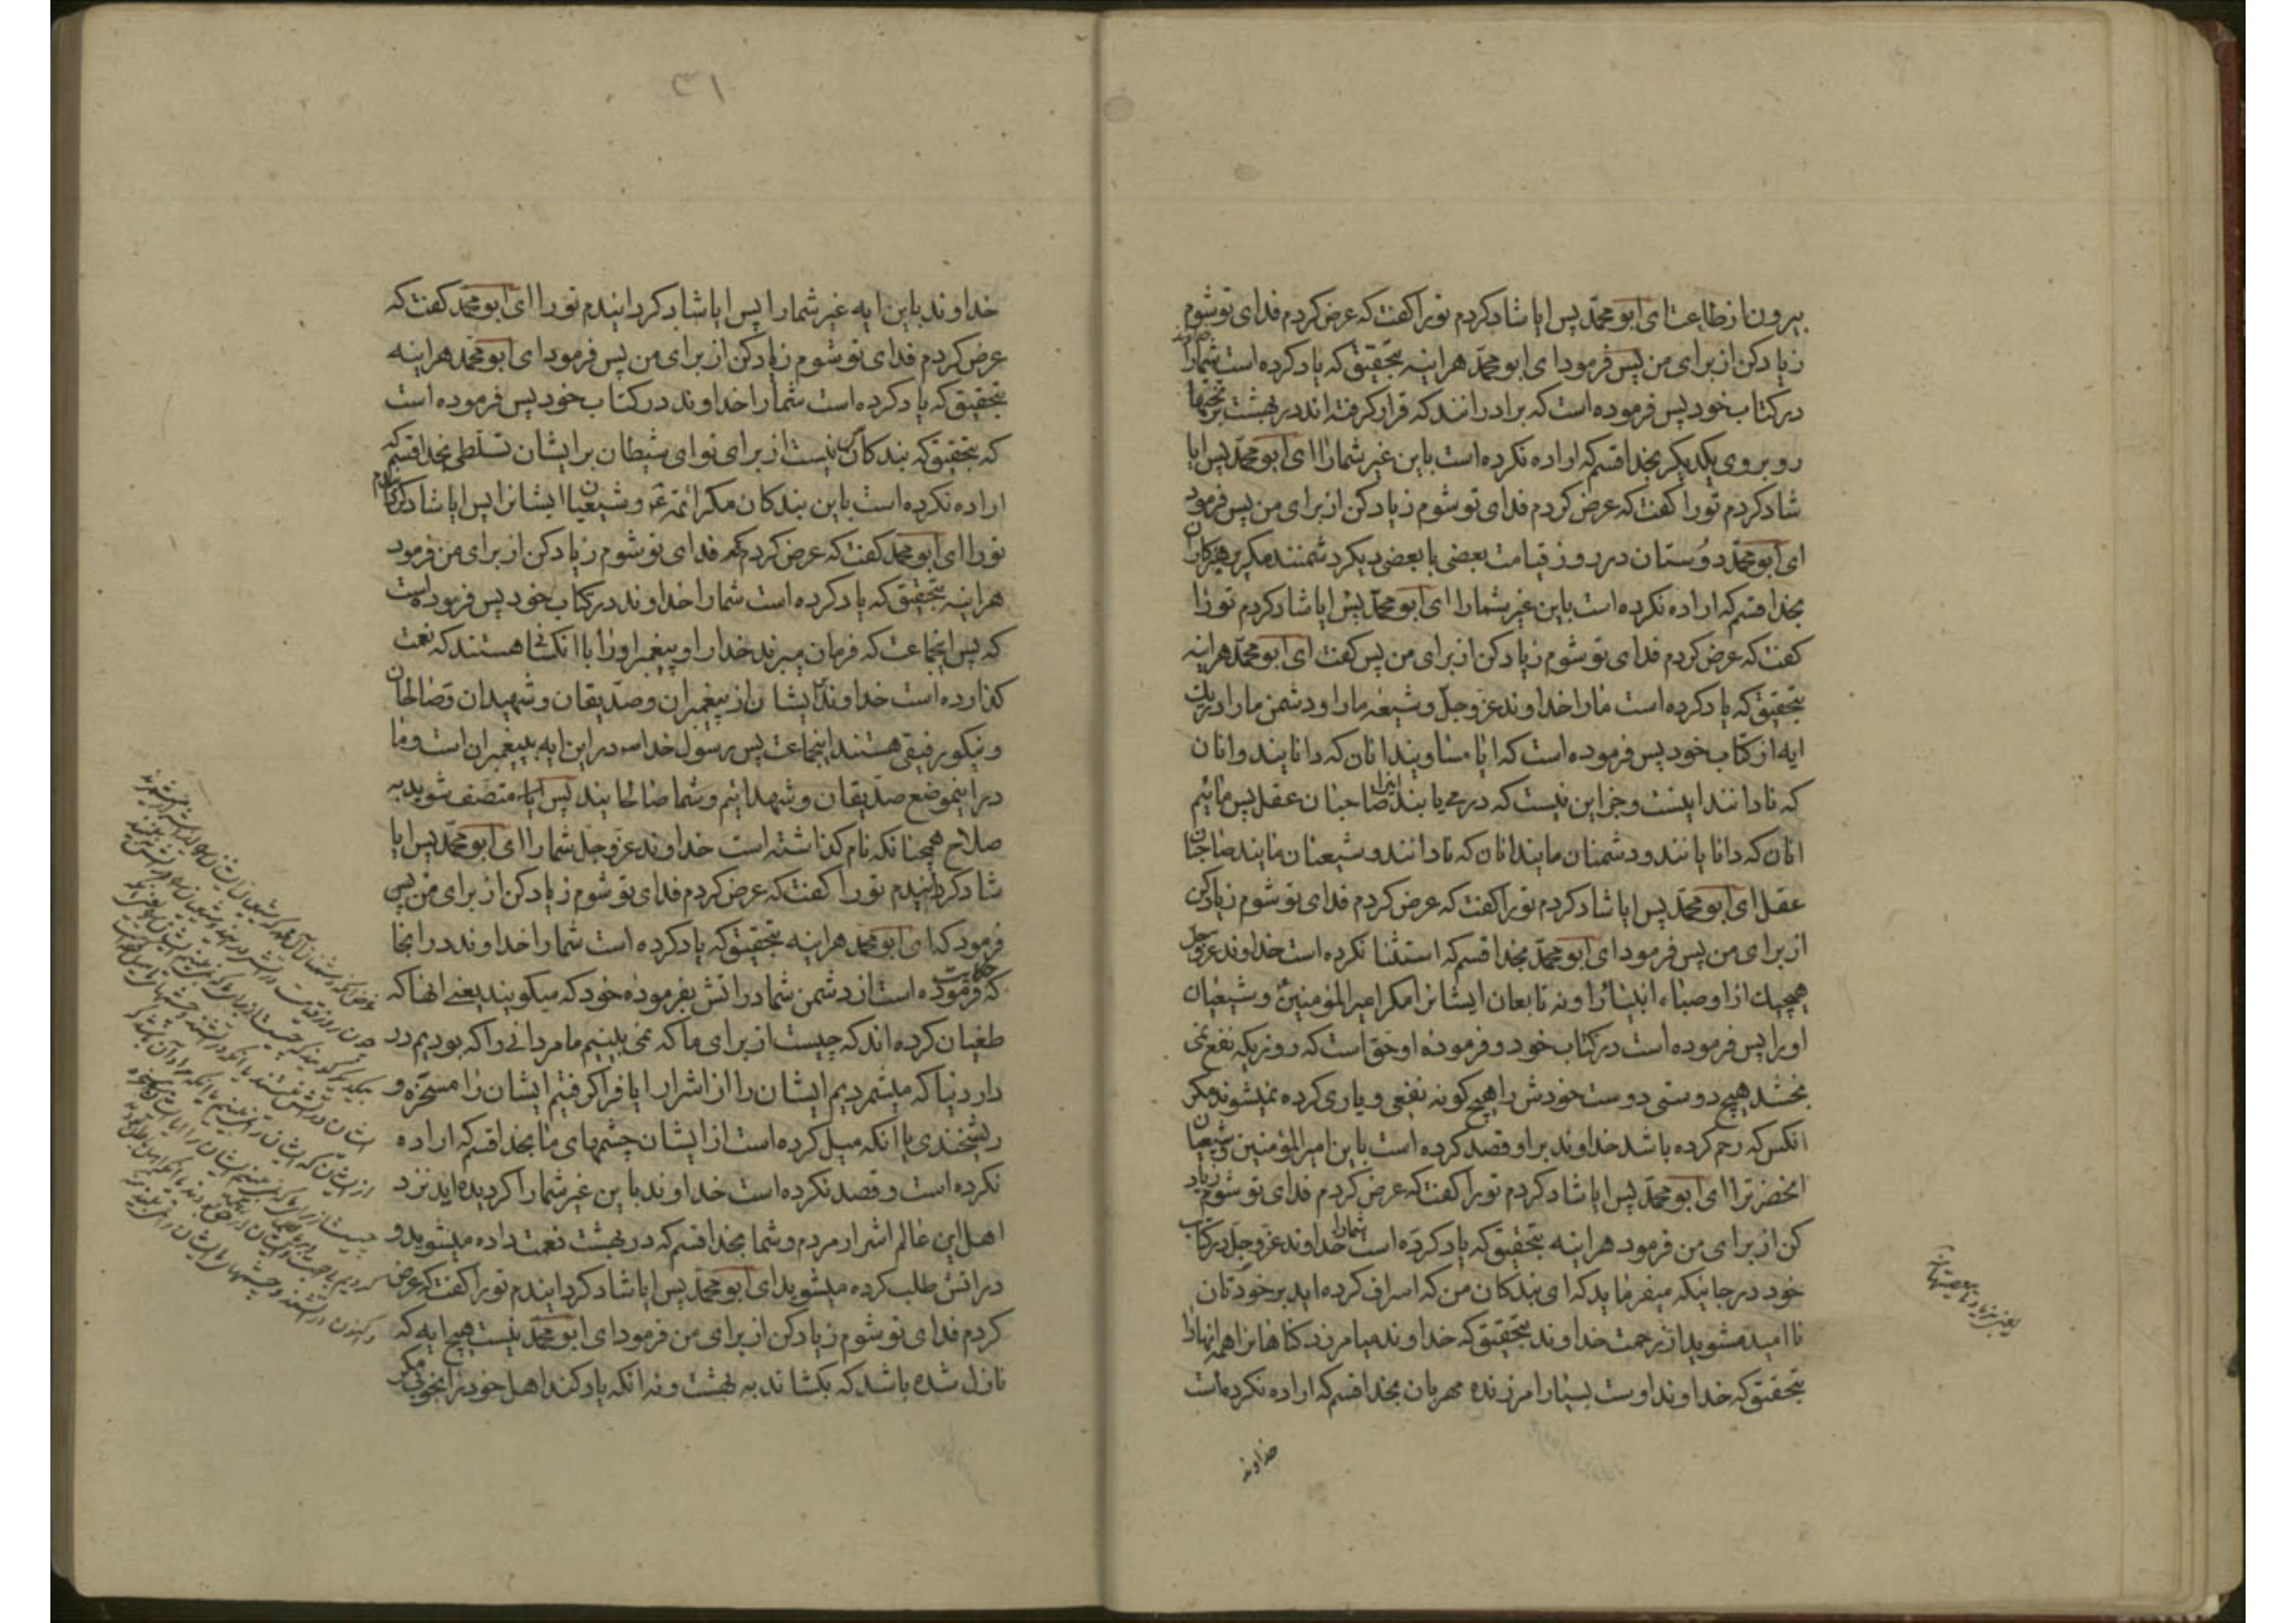 بیرون از طاعت ای ابو محمّد پس ایا شاد کردم تورا گفت که عرض کردم فدای تو شوم
زیاد کن از برای من پس فرمود ای ابو محمّد هراینه بتحقیق که یاد کرده است شمارا خداوند
در کتاب خود پس فرموده است که برادرانند که قرار گرفته اند در بهشت بر تختها
رو بروی یکدیکر بخدا قسم که اراده نکرده است باین غیر شمارا ای ابو محمّد پس ایا
شاد کردم تورا گفت که عرض کردم فدای تو شوم زیاد کن از برای من پس فرمود
ای ابو محمّد دوستان در روز قیامت بعضی با بعضی دیکر دشمنند مکر پرهیزکاران
بخدا قسم که اراده نکرده است باین غیر شمارا ای ابو محمّد پس ایا شاد کردم تورا
گفت که عرض کردم فدای تو شوم زیاد کن از برای من پس گفت ای ابو محمّد هراینه
بتحقیق که یاد کرده است مارا خداوند عزّ وجلّ و شیعه مارا و دشمن مارا در یک
ایه از کتاب خود پس فرموده است که ایا مساویند انان که دانایند و انان
که نادانند اینست و جز این نیست که در می یابند اینرا صاحبان عقل پس مائیم
انان که دانایانند و دشمنان مایند انان که نادانند و شیعیان مایند صاحبان
عقل ای ابو محمّد پس ایا شاد کردم تورا گفت که عرض کردم فدای تو شوم زیاد کن
از برای من پس فرمود ای ابو محمّد بخدا قسم که استثنا نکرده است خداوند عزّ وجل
هیچیک از اوصیاء انبیارا و نه تابعان ایشانرا مکر امیر المؤمنین و شیعیان
اورا پس فرموده است در کتاب خود و فرموده او حق است که روزیکه نفع نمی
بخشد هیچ دوستی دوست خودش را هیچ کونه نفعی و یاری کرده نمیشوند مکر
انکس که رحم کرده باشد خداوند بر او قصد کرده است باین امیر المؤمنین و شیعیان
انحضرترا ای ابو محمّد پس ایا شاد کردم تورا گفت که عرض کردم فدای تو شوم زیاد
کن از برای من فرمود هراینه بتحقیق که یاد کرده است شمارا خداوند عزّ وجلّ در کتاب
خود در جائیکه میفرماید که ای بندکان من که اسراف کرده اید بر خودتان
نا امید مشوید از رحمت خداوند بتحقیق که خداوند میامرزد کناهانرا همه انهارا
بتحقیق که خداوند اوست بسیار امرزنده مهربان بخدا قسم که اراده نکرده است
خداوند
۳۱
خداوند باین ایه غیر شمارا پس ایا شاد کردانیدم تورا ای ابو محمّد گفت که
عرض کردم فدای تو شوم زیاد کن از برای من پس فرمود ای ابو محمّد هراینه
بتحقیق که یاد کرده است شمارا خداوند در کتاب خود پس فرموده است
که بتحقیق که بندکان من نیست از برای تو ای شیطان بر ایشان تسلّطی بخدا قسم که
اراده نکرده است باین بندکان مکر ائمّه و شیعیان ایشانرا پس ایا شاد کردانیدم
تورا ای ابو محمّد گفت که عرض کردم که فدای تو شوم زیاد کن از برای من فرمود
هراینه بتحقیق که یاد کرده است شمارا خداوند در کتاب خود پس فرموده است
که پس انجماعت که فرمان میبرند خدارا و پیغمبر اورا با انکسا هستند که نعمت
کذارده است خداوند بایشان از پیغمبران و صدّیقان و شهیدان و صالحان
و نیکو رفیقی هستند اینجماعت پس رسول خدا در این ایه پیغمبران است و ما
در اینموضع صدّیقان و شهدائیم و شما صالحانید پس متصف شوید به
صلاح همچنانکه نام کذاشته است خداوند عزّ وجلّ شمارا ای ابو محمّد پس ایا
شاد کردانیدم تورا گفت که عرض کردم فدای تو شوم زیاد کن از برای من پس
فرمود که ای ابو محمّد هراینه بتحقیق که یاد کرده است شمارا خداوند در انجا
که حکایت فرموده است از دشمن شما در اتش بفرموده خود که میکویند یعنی انها که
طغیان کرده اند که چیست از برای ما که نمی بینیم ما مردانی را که بودیم در
دار دنیا که میشمردیم ایشان را از اشرار ایا فرا کرفتیم ایشان را مسخره و
ریشخندی یا انکه میل کرده است از ایشان چشمهای ما بخدا قسم که اراده
نکرده است و قصد نکرده است خداوند باین غیر شمارا کردیده اید نزد
اهل این عالم اشرار مردم و شما بخدا قسم که در بهشت نعمت داده میشوید و
در اتش طلب کرده میشوید ای ابو محمّد پس ایا شاد کردانیدم تورا گفت که عرض
کردم فدای تو شوم زیاد کن از برای من فرمود ای ابو محمّد نیست هیچ ایه که
نازل شده باشد که بکشاند به بهشت و نه انکه یاد کند اهل خود را بخوبی مکر